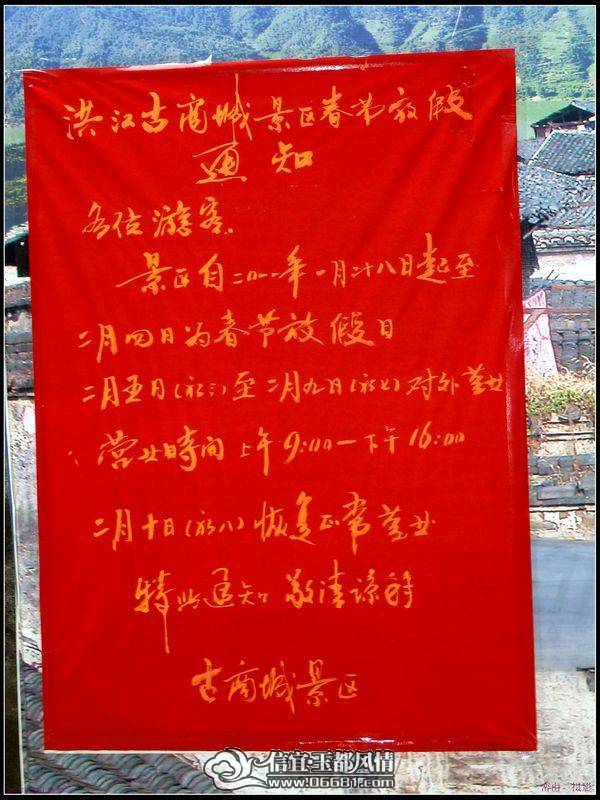 洪江古商城景区春节放假
通知
各位游客:
景区自二0一一年一月廿八日起至
二月四日为春节放假日
二月五日(初三)至二月九日(初七)对外营业
营业時间 上午9:00—下午16:00
二月十日(初八)恢复正常营业
特此通知 敬请谅解
古商城景区
信宜玉都风情
www.06681.com
摄影